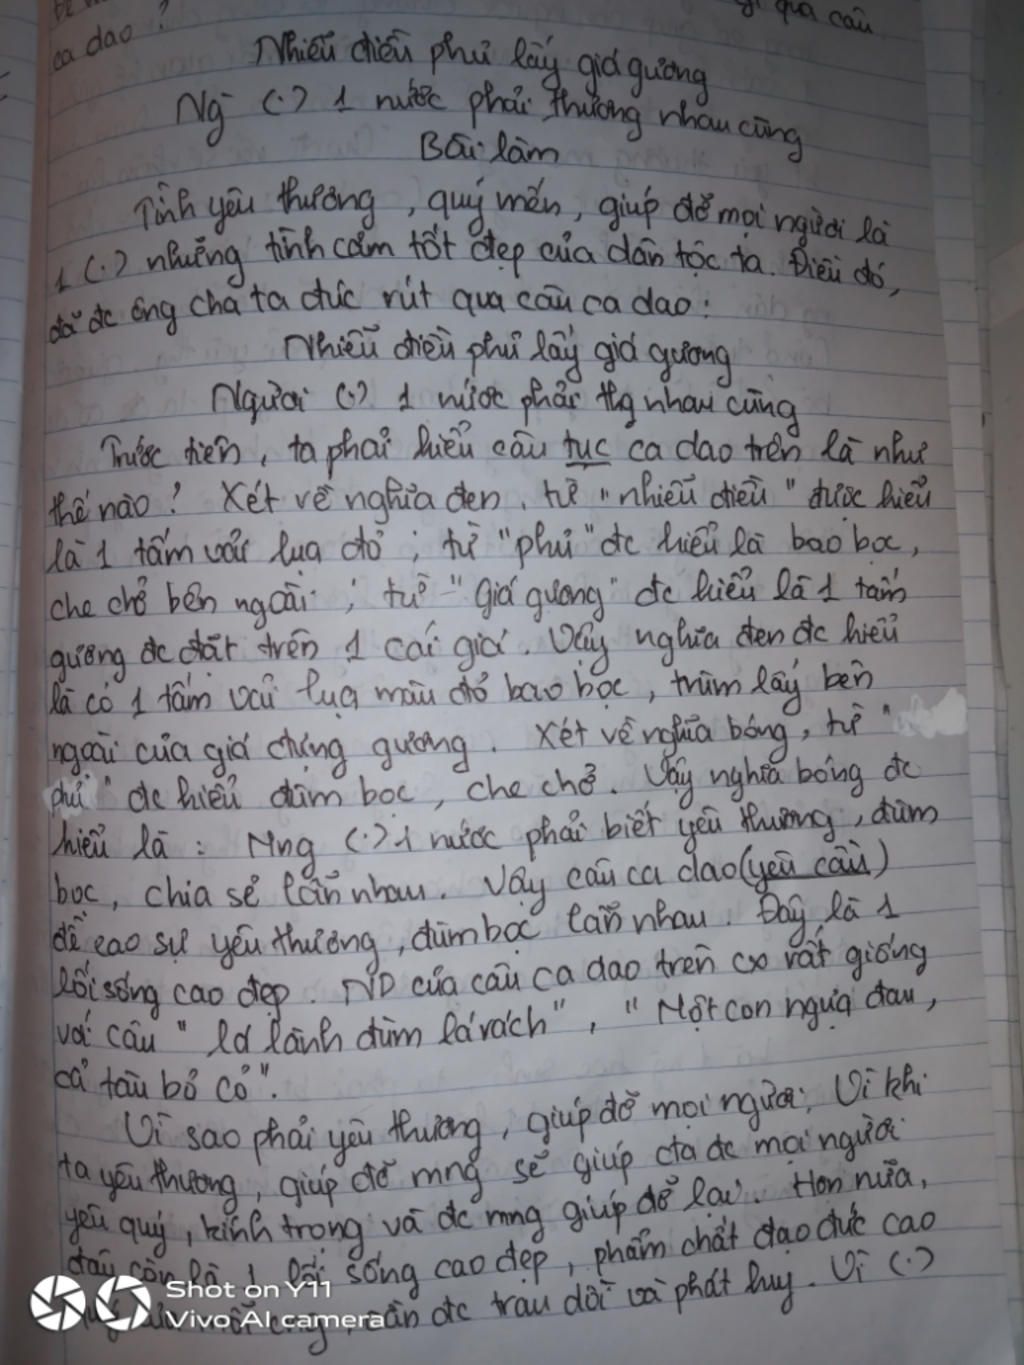 qua câu
ca dao ?
Nhiễu điều phủ lấy giá gương
Ng (.) 1 nước phải thương nhau cùng
Bài làm
Tình yêu thương, quý mến, giúp đỡ mọi người là
1 (.) những tình cảm tốt đẹp của dân tộc ta. Điều đó,
đã đc ông cha ta đúc rút qua câu ca dao :
Nhiễu điều phủ lấy giá gương
Người (.) 1 nước phải thg nhau cùng
Trước tiên, ta phải hiểu câu tục ca dao trên là như
thế nào ? Xét về nghĩa đen, từ "nhiễu điều" được hiểu
là 1 tấm vải lụa đỏ ; từ "phủ" đc hiểu là bao bọc,
che chở bên ngoài ; từ "Giá gương" đc hiểu là 1 tấm
gương đc đặt trên 1 cái giá. Vậy nghĩa đen đc hiểu
là có 1 tấm vải lụa màu đỏ bao bọc, trùm lấy bên
ngoài của giá chứng gương. Xét về nghĩa bóng, từ "
phủ" đc hiểu đùm bọc, che chở. Vậy nghĩa bóng đc
hiểu là : Mng (.) 1 nước phải biết yêu thương, đùm
bọc, chia sẻ lẫn nhau. Vậy câu ca dao (yêu cầu)
đề cao sự yêu thương, đùm bọc lẫn nhau. Đây là 1
lối sống cao đẹp. ND của câu ca dao trên cx rất giống
với câu "lá lành đùm lá rách", "Một con ngựa đau,
cả tàu bỏ cỏ".
Vì sao phải yêu thương, giúp đỡ mọi người. Vì khi
ta yêu thương, giúp đỡ mng sẽ giúp cta đc mọi người
yêu quý, kính trọng và đc mng giúp đỡ lại. Hơn nữa,
đây còn là 1 lối sống cao đẹp, phẩm chất đạo đức cao
cần đc trau dồi và phát huy. Vì (.)
Shot on Y11
Vivo AI camera